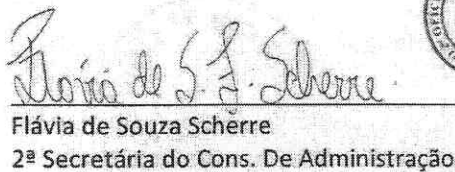 Flávia de S. F. Scherre.
Flávia de Souza Scherre
2ª Secretária do Cons. De Administração